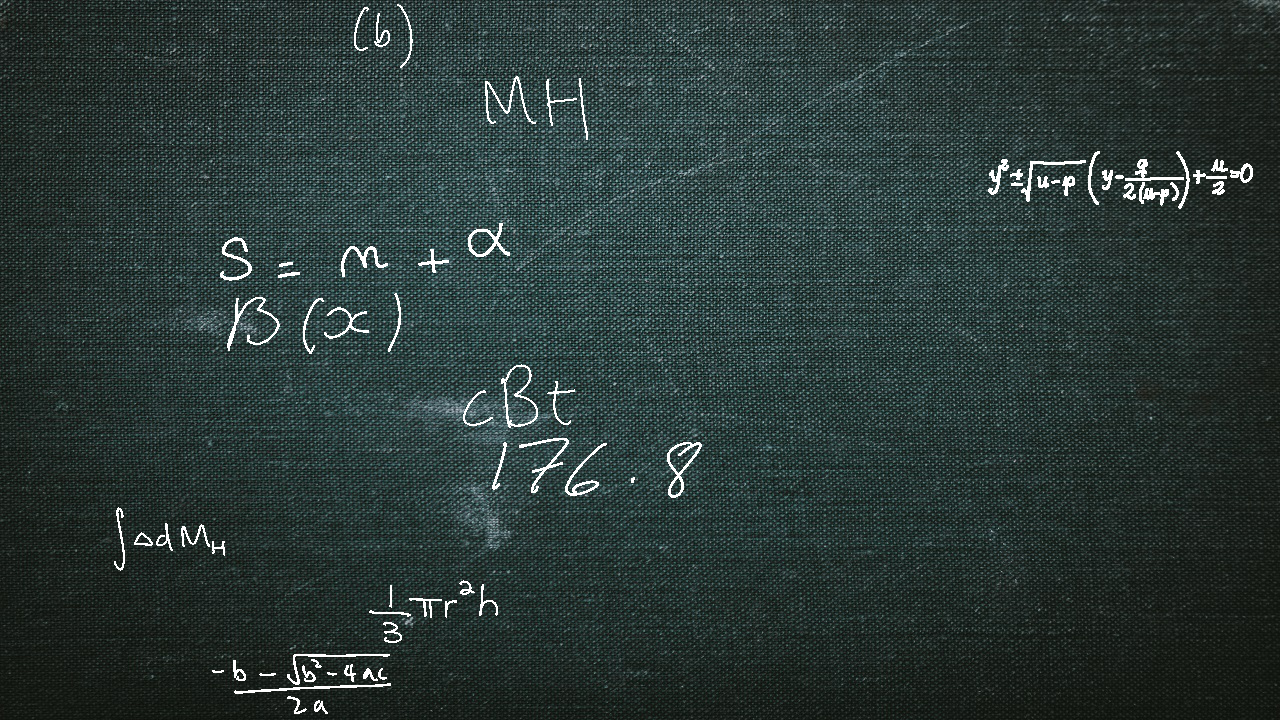 (b)
MH
y² ± √(u-p) (y - q/(2(u-p))) + u/2 = 0
S = n + α
B (x)
cBt
176.8
∫ΔdM_H
1/3 πr²h
(-b - √(b²-4ac))/(2a)